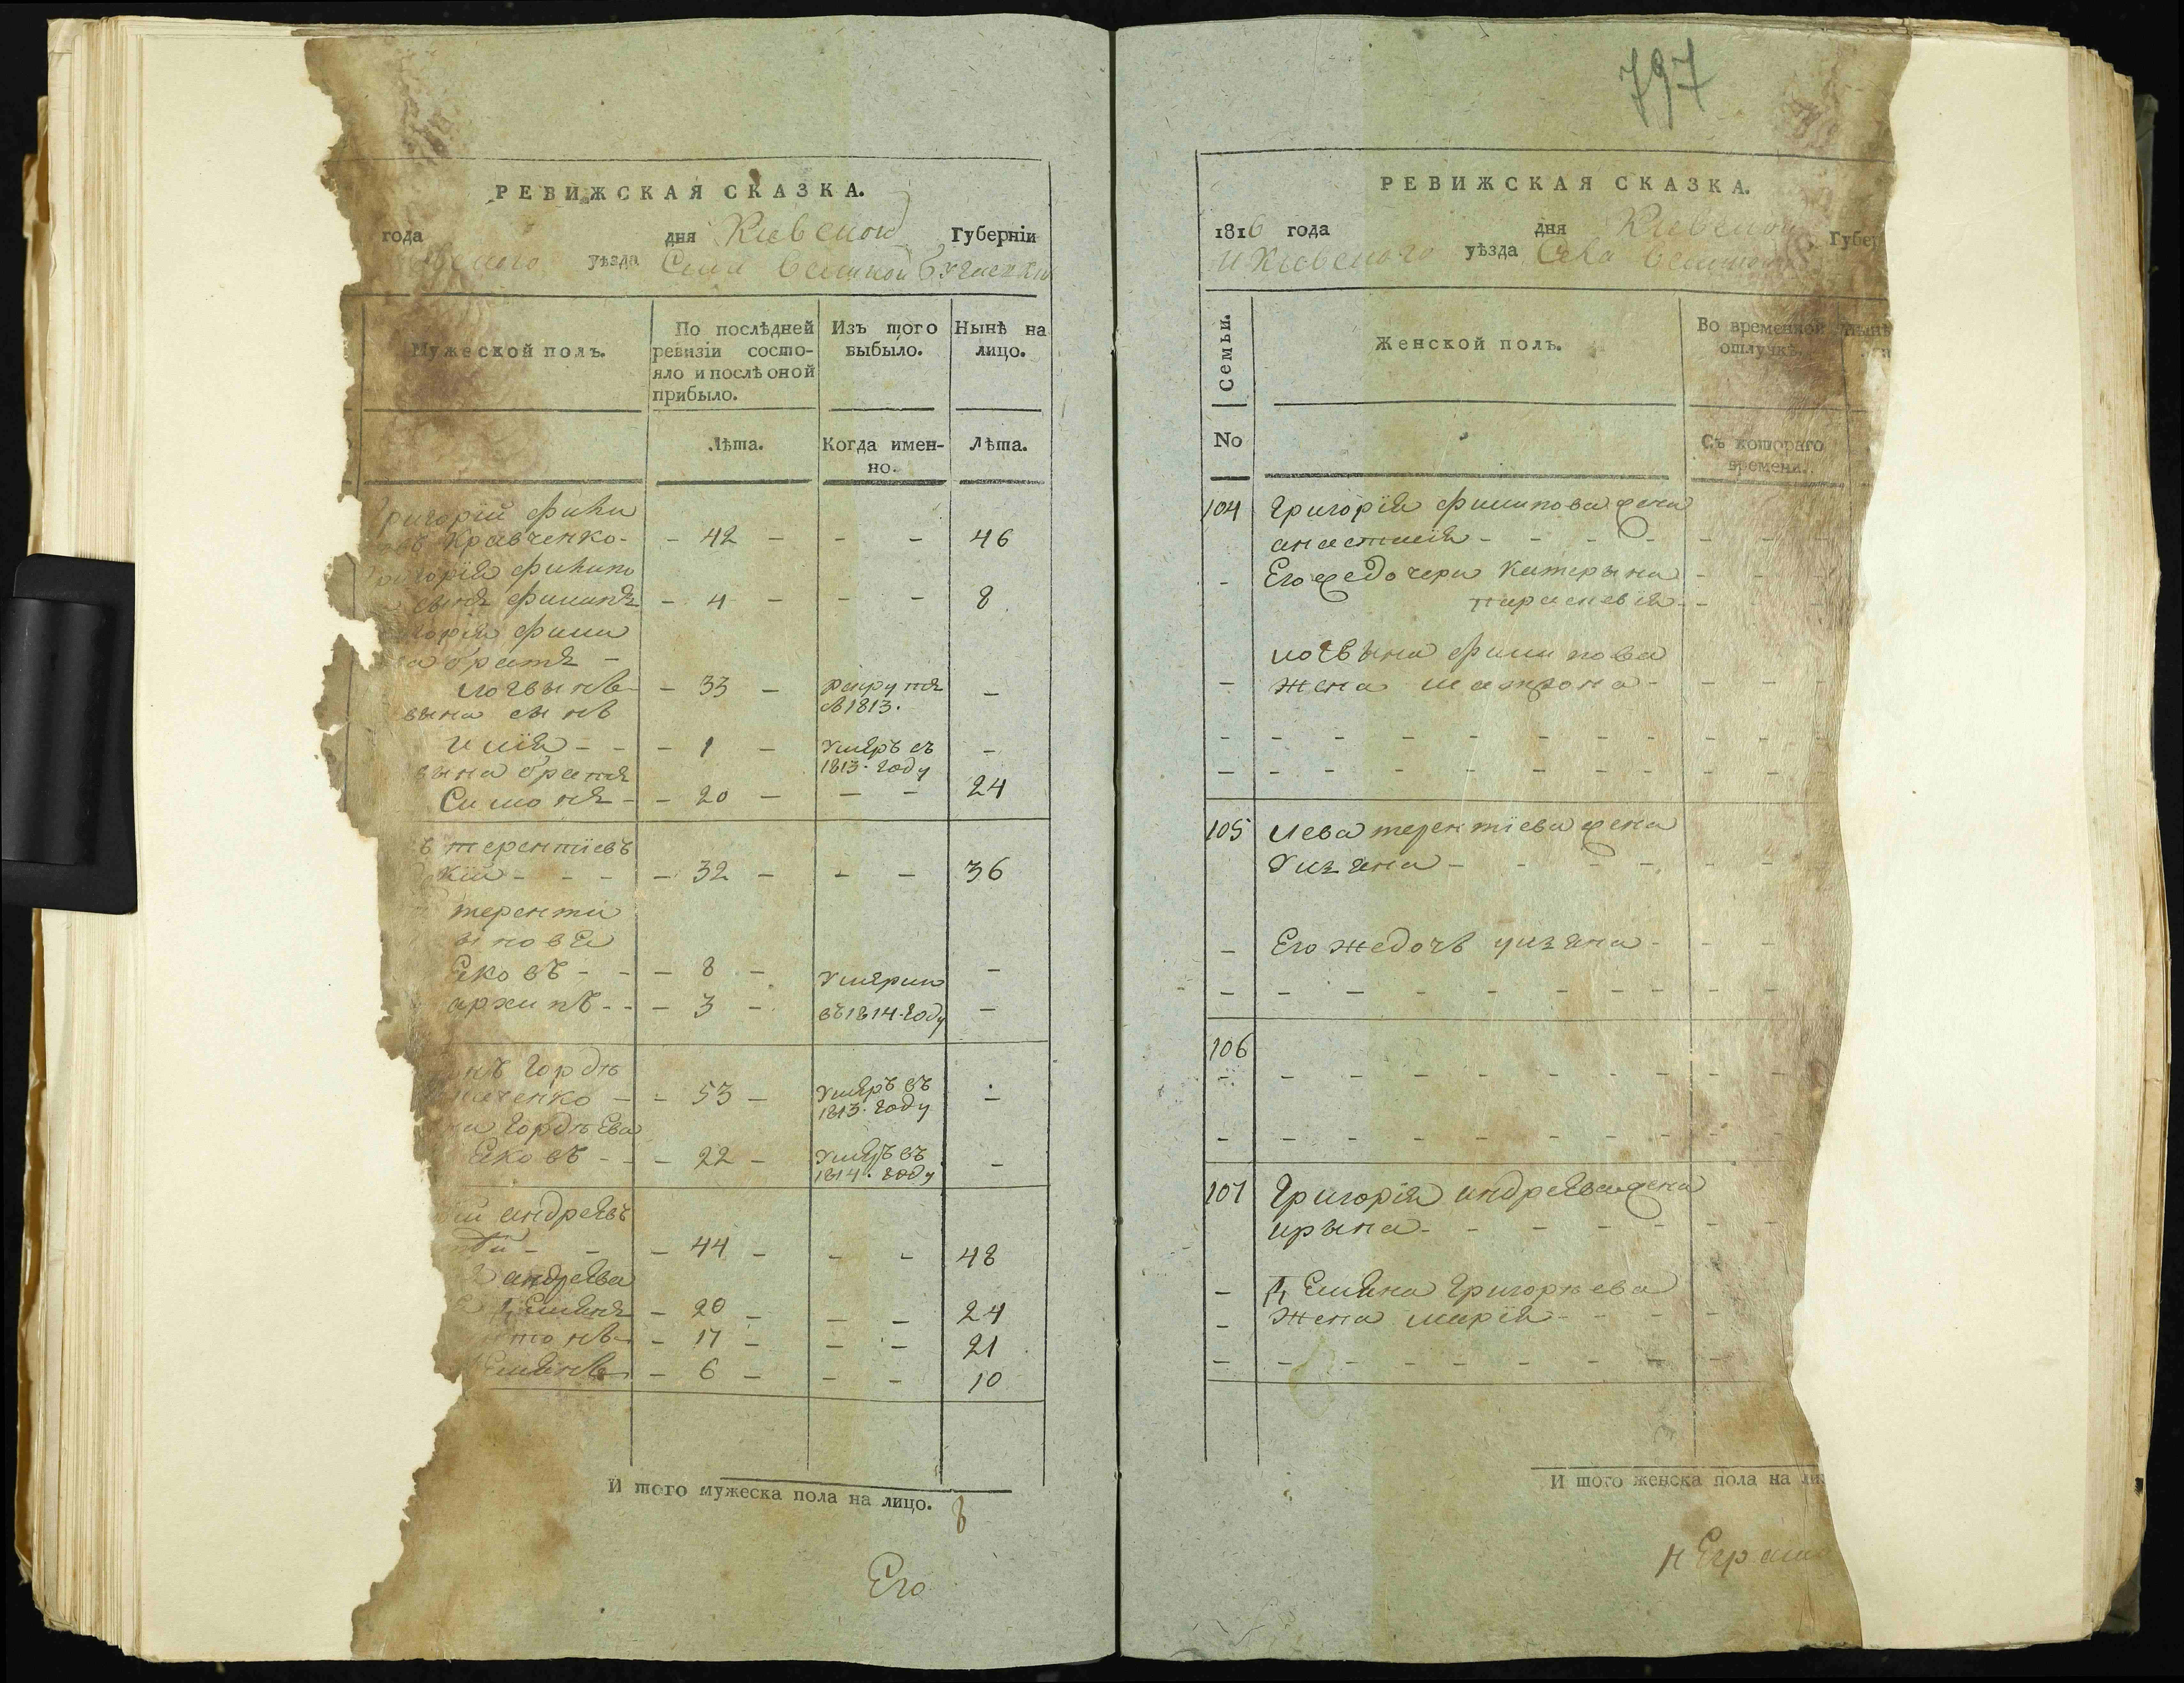 РЕВИЖСКАЯ СКАЗКА.
года дня Киевской Губерніи
уѣзда Села Великой
Мужеской полъ.
По послѣдней ревизіи состо-
яло и послѣ оной
прибыло.
Изъ того
выбыло.
Нынѣ на
лицо.
Лѣта.
Когда имен-
но.
Лѣта.
ригорій Фили
Кравченко - - 42 - - - 46
ригорія Филипо
сынъ Филипъ - 4 - - - 8
горія Фили
братъ -
Логвынъ - 33 - рекрутъ
въ 1813. -
вына сынъ
Илія - - - 1 - Умеръ въ
1813. году -
вына братъ
Симонъ - - 20 - - - 24
ъ терентіевъ
кій - - - - 32 - - - 36
терентія
ынова
Яковъ - - - 8 - Умерли -
архипъ - - - 3 - въ 1814. году -
нъ Гордѣ
ченко - - 53 - Умеръ въ
1813. году -
на Гордѣева
Яковъ - - - 22 - Умеръ въ
1814. году -
ій андреевъ
- - - 44 - - - 48
андреева
Демянъ - 20 - - - 24
нтонъ - 17 - - - 21
емянъ - 6 - - - 10
И того мужеска пола на лицо. 8
Его
797
РЕВИЖСКАЯ СКАЗКА.
1816 года дня Киевской Губер
И Киевского уѣзда Села Великой
Семьи.
Женской полъ.
Во временной
отлучкѣ.
Нынѣ
No
Съ котораго
времени.
104 Григорія Филипова жена
анастасія - - - - - - -
- Его же дочери Катерына - - -
параскевія - - -
Логвына Филипова
- жена матрона - - - -
- - - - - - - - - - - -
- - - - - - - - - - - -
105 Лева терентіева жена
Улияна - - - - - - -
- Его же дочь улияна - - -
- - - - - - - - - - -
106
- - - - - - - - - - -
- - - - - - - - - - -
107 Григорія андреева жена
ирына - - - - - - -
- Демяна Григорьева
- жена марія - - - -
- - - - - - - - -
И того женска пола на ли